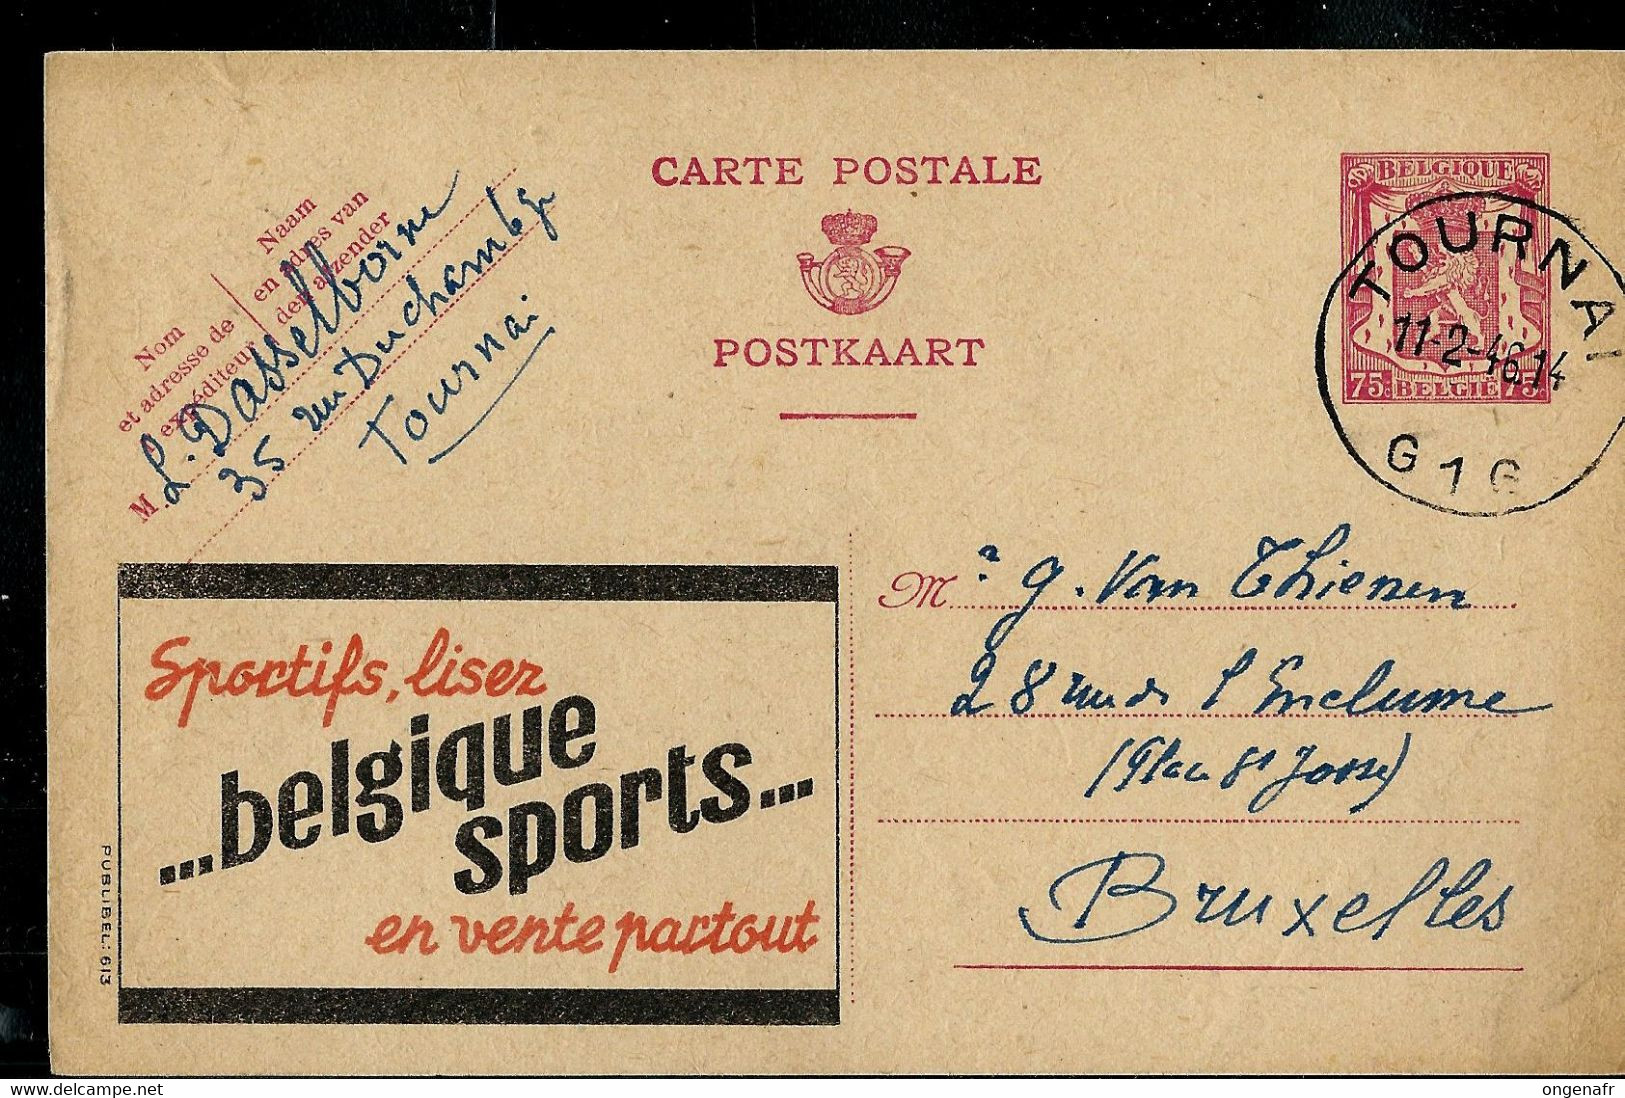 CARTE POSTALE
POSTKAART
Nom
et adresse de
l'expéditeur
Naam
en adres van
den afzender
M. L. Dasselborne
35 rue Duchambge
Tournai
BELGIQUE
75c BELGIË 75c
TOURNAI
11-2-46.14
G 1 G
Mr G. Van Thienen
28 rue de l'Enclume
(Place St Josse)
Bruxelles
Sportifs, lisez
...belgique
sports...
en vente partout
PUBLIBEL: 613
delcampe.net
ongenafr